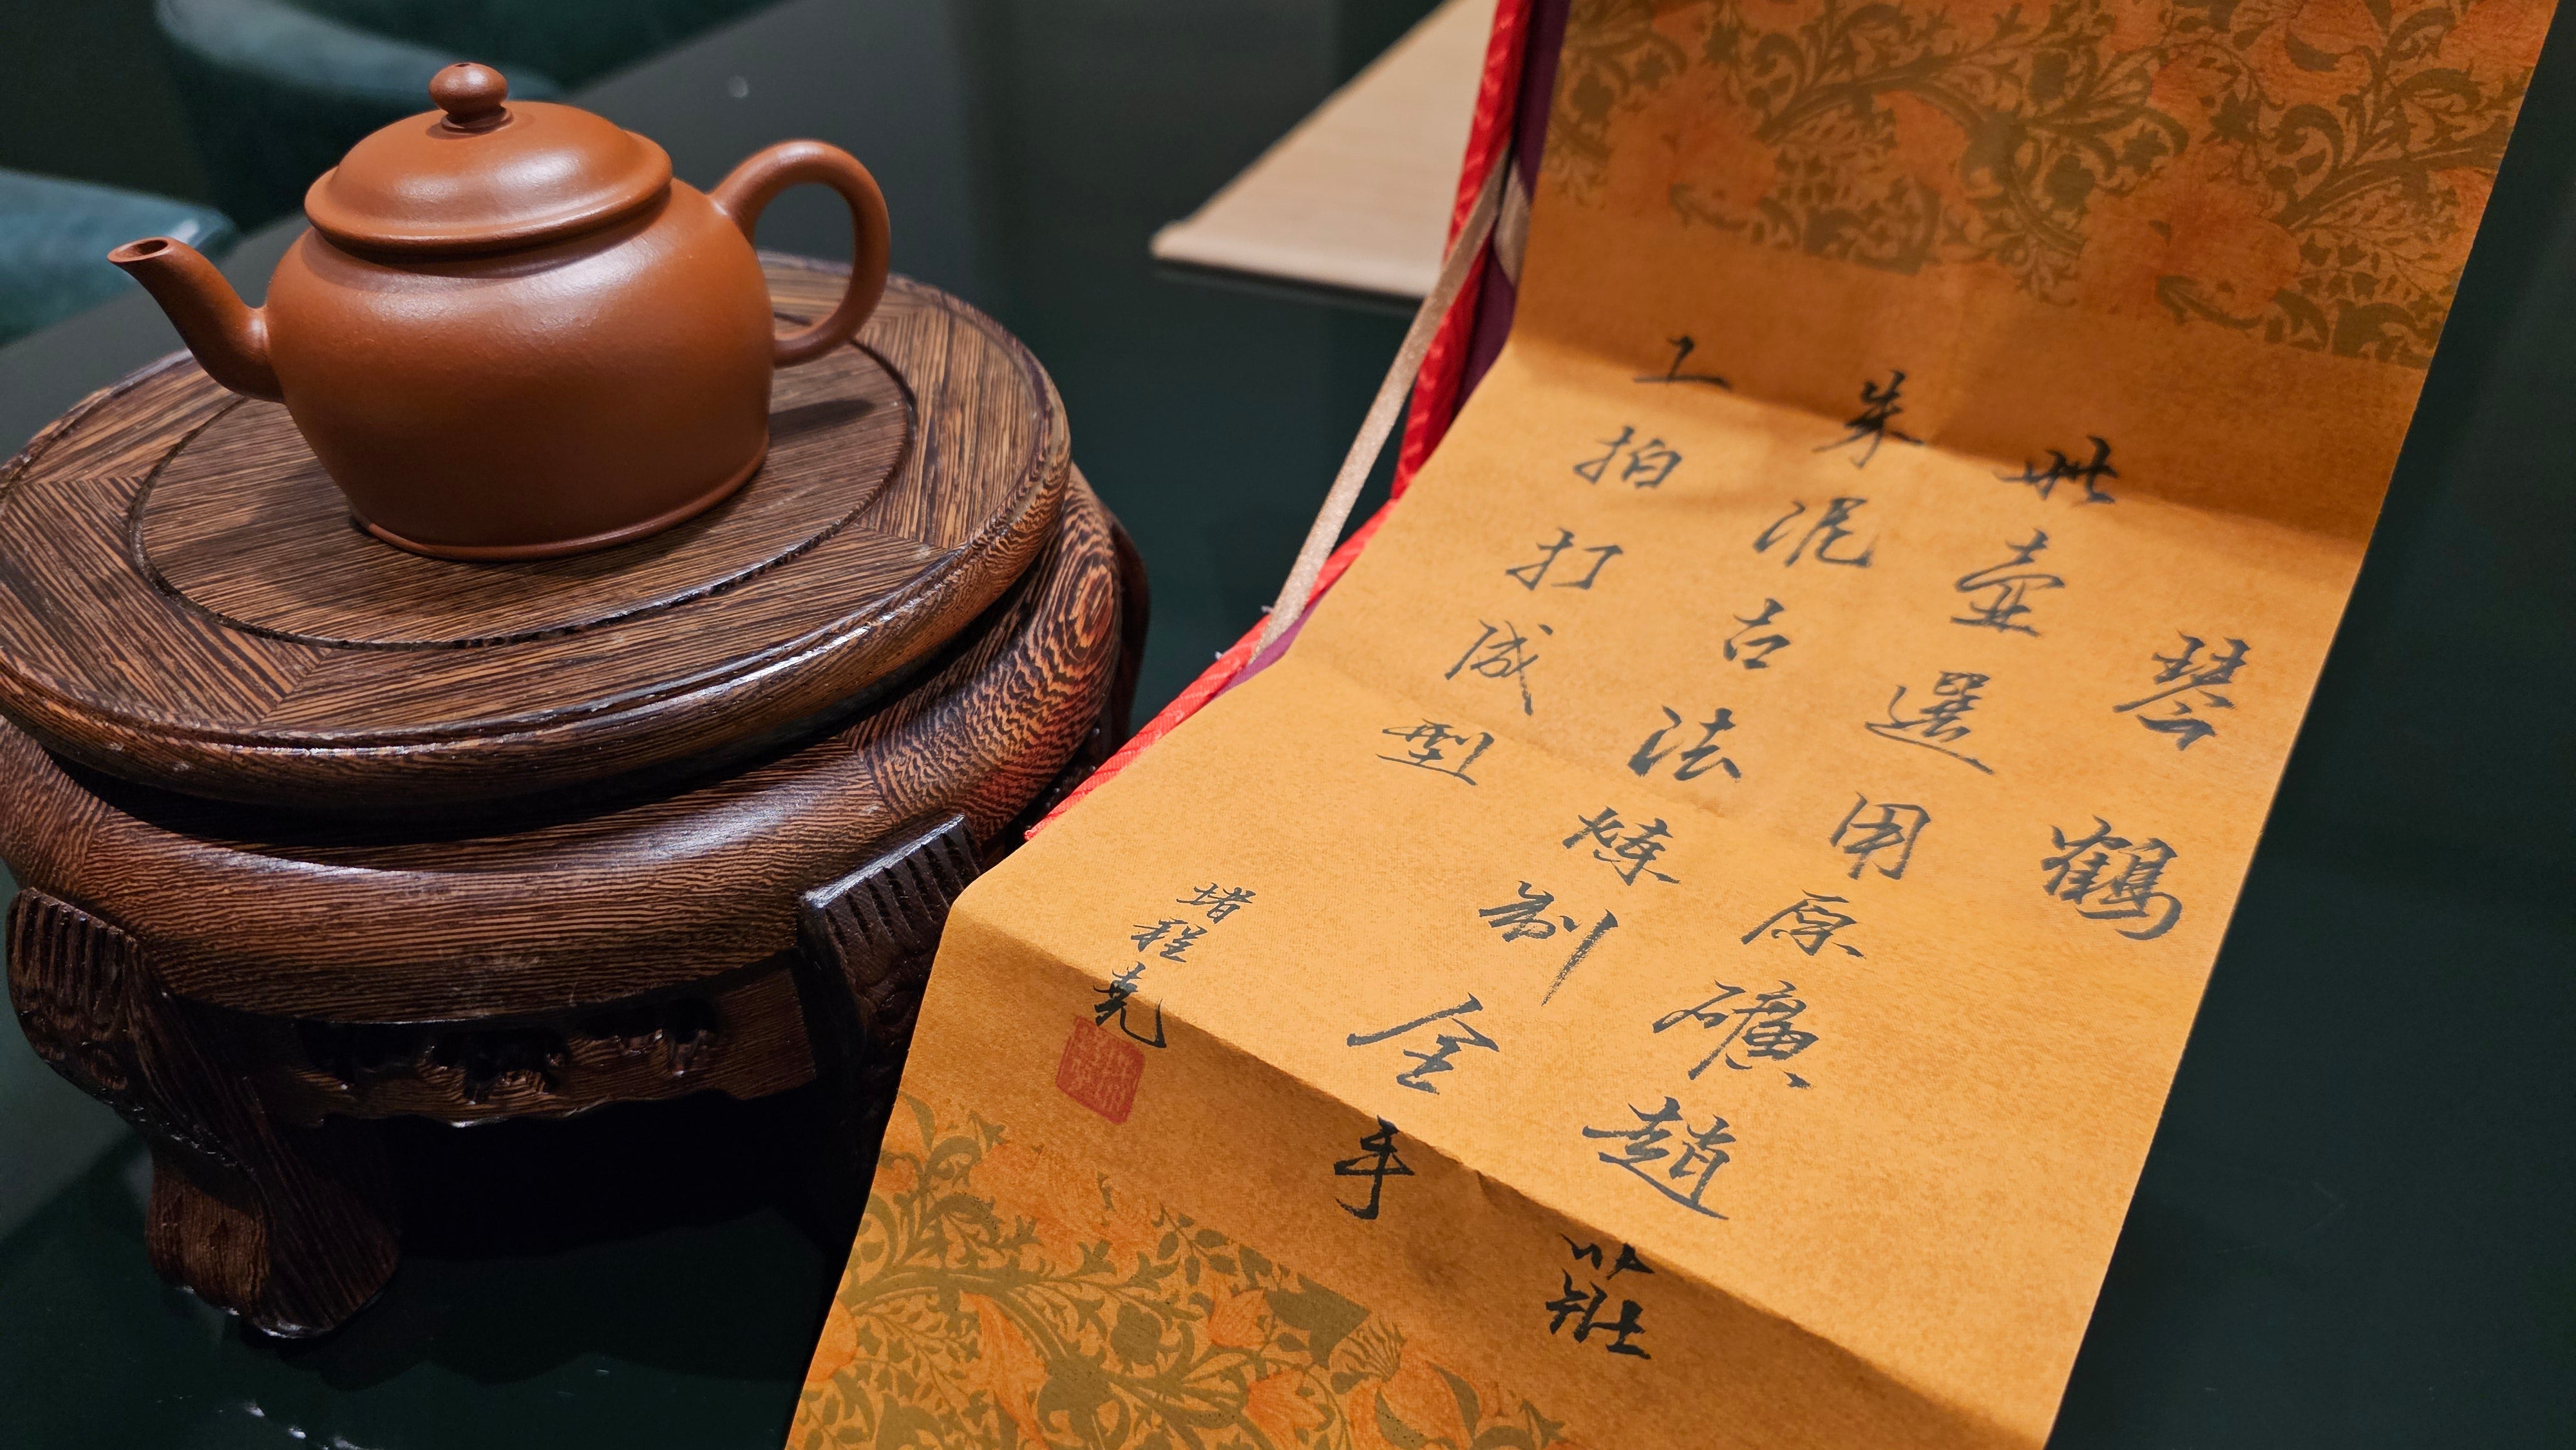 琴鶴
此壶選用原礦趙莊
朱泥古法煉制全手
工拍打成型
堵程尧